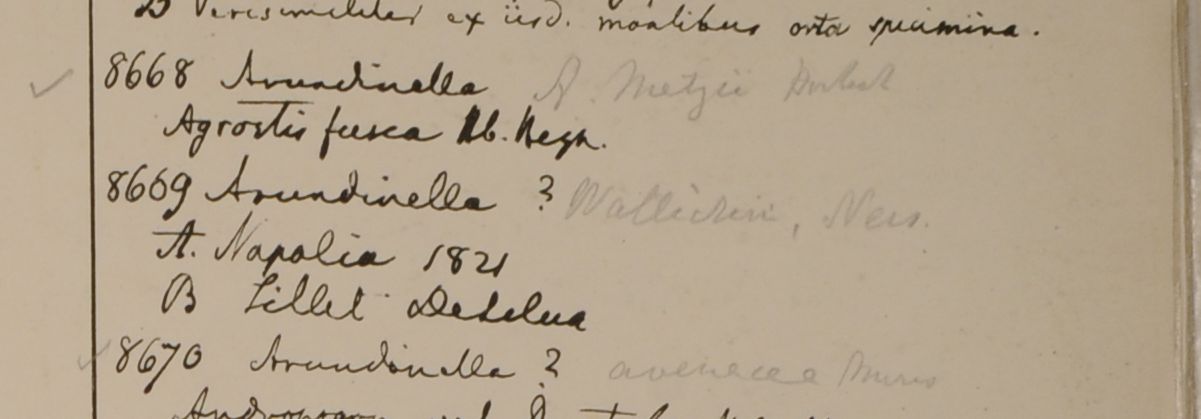 B Verisimiliter ex iisd. montibus orta specimina.
8668 Arundinella A. Metzii
Agrostis fusca Hb. Heyn.
8669 Arundinella ? Wallichii, Nees.
A. Napalia 1821
B Sillet
8670 Arundinella ? avenacea Munro